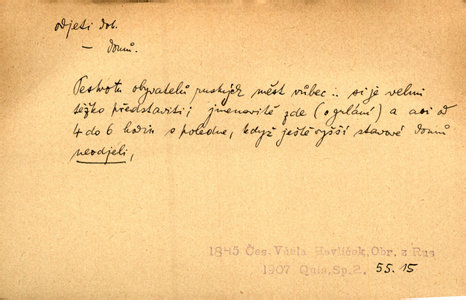 odjeti dok.
— domů.
Pestrotu obyvatelů ruských měst vůbec :. si je velmi
těžko představiti; jmenovitě zde (         ) a asi od
4 do 6 hodin s poledne, když ještě vyšší stavové domů
neodjeli,
1843 Čes. Včela Havlíček, Obr. z Rus
1907 Quis, Sp. 2. 55. 15